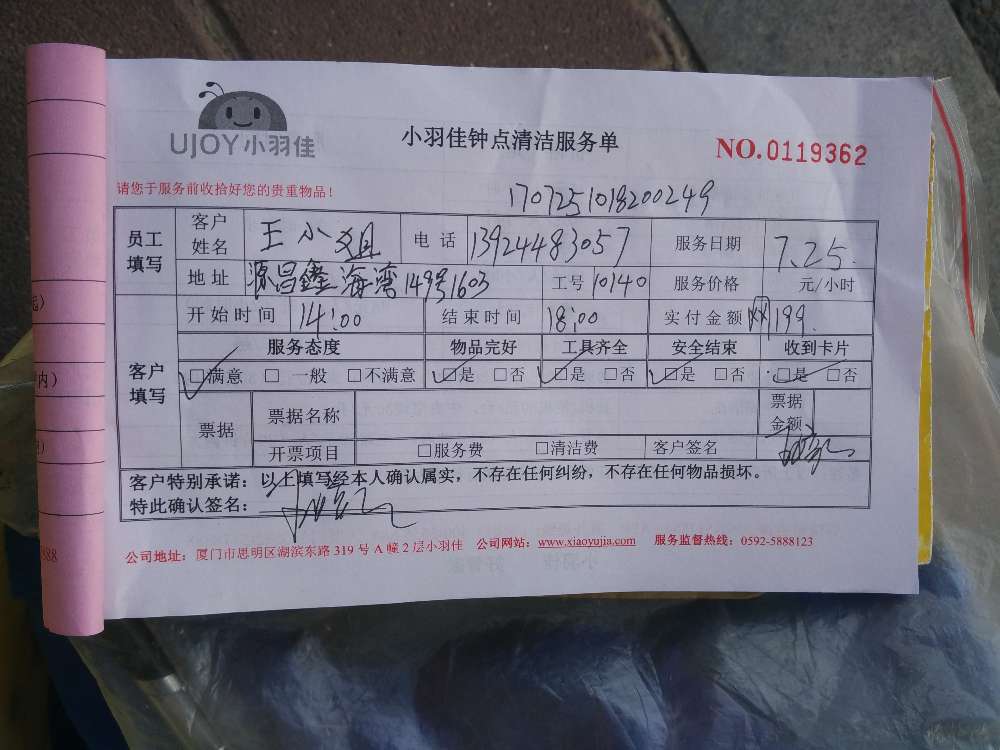 UJOY小羽佳
小羽佳钟点清洁服务单
NO.0119362
请您于服务前收拾好您的贵重物品！
1707251018200249
员工填写 客户姓名 王小姐 电话 13924483057 服务日期 7.25.
地址 源昌鑫海湾149号1603 工号 10140 服务价格 元/小时
客户填写 开始时间 14:00 结束时间 18:00 实付金额 199.
服务态度 物品完好 工具齐全 安全结束 收到卡片
☑满意 □一般 □不满意 ☑是 □否 ☑是 □否 ☑是 □否 ☑是 □否
票据 票据名称 票据金额
开票项目 □服务费 □清洁费 客户签名
客户特别承诺：以上填写经本人确认属实，不存在任何纠纷，不存在任何物品损坏。
特此确认签名：
公司地址：厦门市思明区湖滨东路 319 号 A 幢 2 层小羽佳 公司网站：www.xiaoyujia.com 服务监督热线：0592-5888123